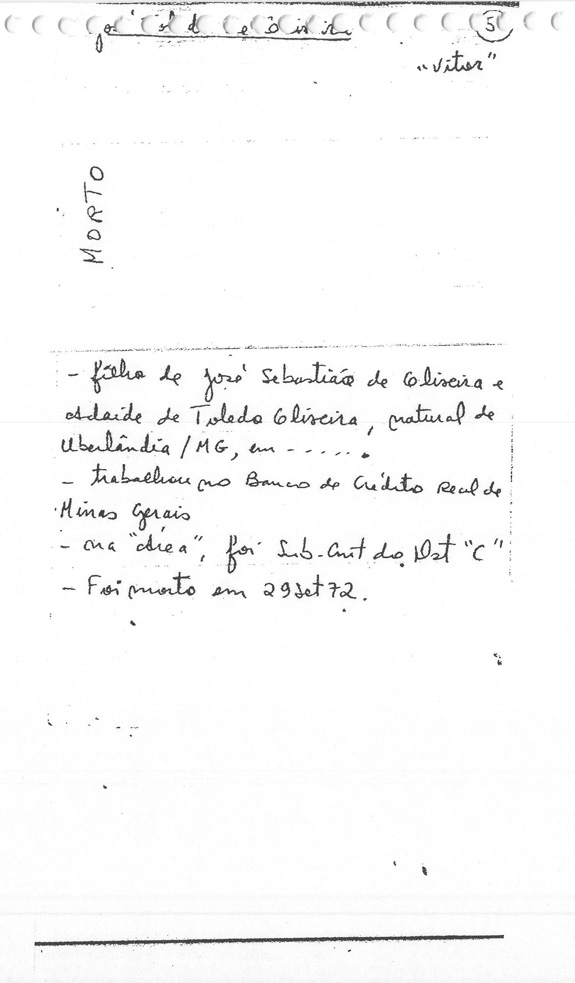 José
5
"Vitor"
MORTO
- filho de José Sebastião de Oliveira e
Adaide de Toledo Oliveira, natural de
Uberlândia / MG, em - . . . . .
- trabalhou no Banco de Crédito Real de
Minas Gerais
- na "área", foi Sub-Cmt do Dst "C"
- Foi morto em 29 Set 72.